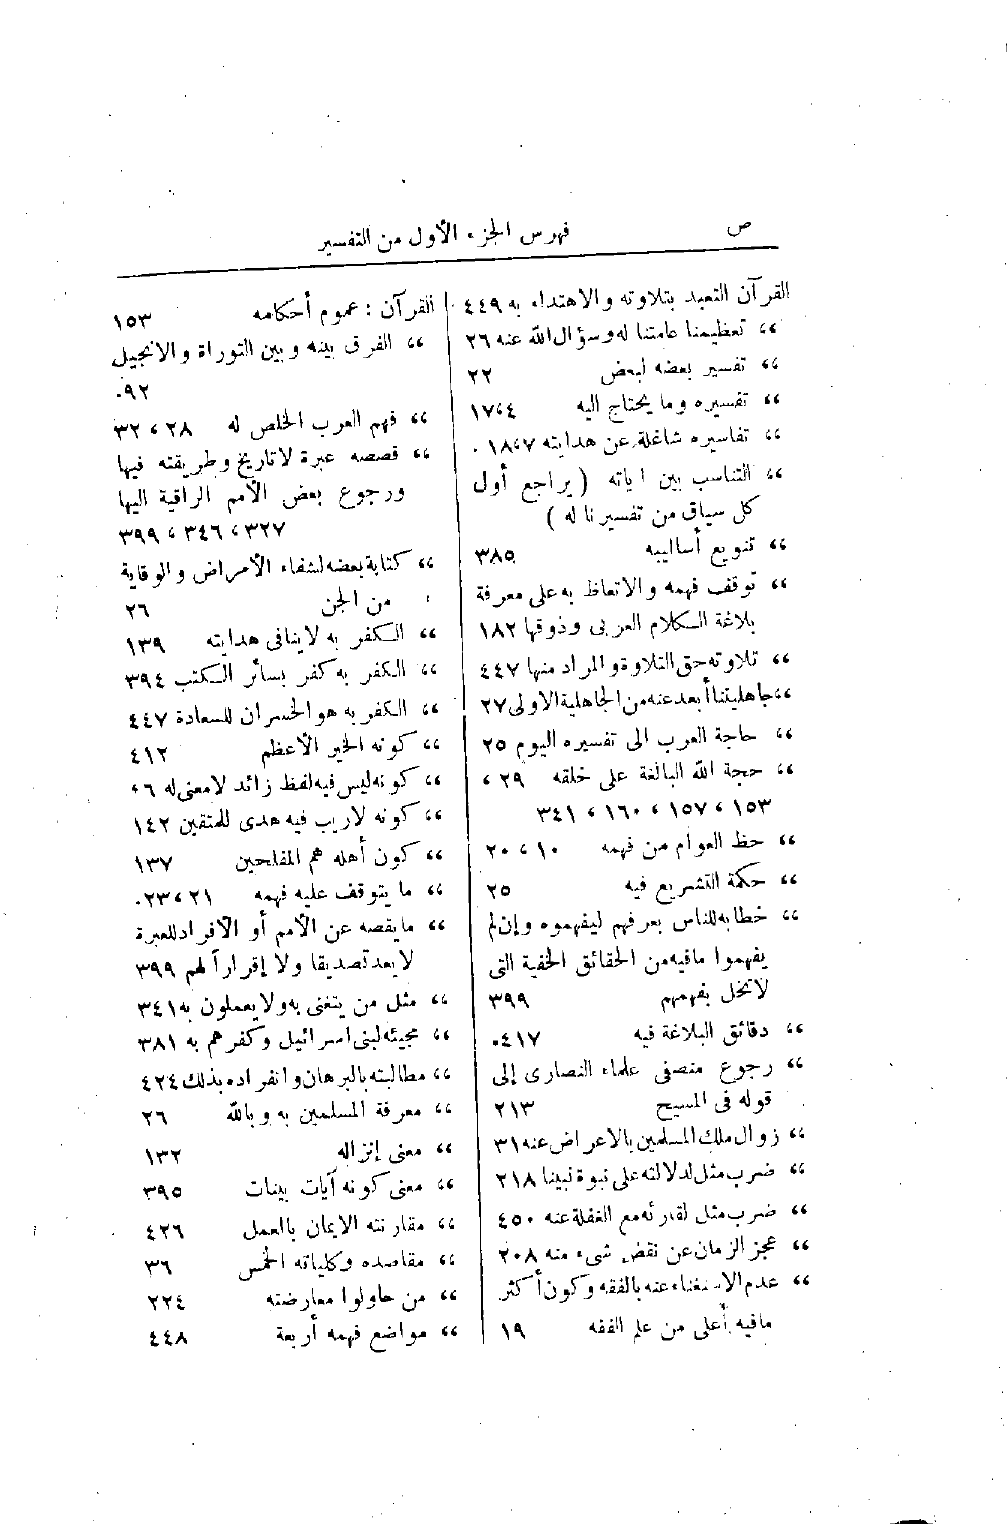 ص
فهرس الجزء الأول من التفسير
القرآن التعبد بتلاوته والاهتداء به ٤٤٩
“ تعظيمنا عامتنا له وسؤال الله عنه ٢٦
“ تفسير بعضه لبعض ٢٢
“ تفسيره وما يحتاج اليه ١٧،٤
“ تفاسيره شاغلة عن هدايته ١٨،٧
“ التناسب بين اياته ( يراجع أول
كل سياق من تفسيرنا له )
“ تنويع أساليبه ٣٨٥
“ توقف فهمه والاتعاظ به على معرفة
بلاغة الكلام العربى وذوقها ١٨٢
“ تلاوته حق التلاوة والمراد منها ٤٤٧
“ جاهليتنا أبعد عنه من الجاهلية الاولى ٢٧
“ حاجة العرب الى تفسيره اليوم ٢٥
“ حجة الله البالغة على خلقه ٢٩ ،
١٥٣ ، ١٥٧ ، ١٦٠ ، ٣٤١
“ حظ العوام من فهمه ١٠ ، ٢٠
“ حكمة التشريع فيه ٢٥
“ خطابه للناس بعرفهم ليفهموه وإن لم
يفهموا مافيه من الحقائق الخفية التى
لاتخل بفهمهم ٣٩٩
“ دقائق البلاغة فيه ٤١٧
“ رجوع منصفى علماء النصارى إلى
قوله فى المسيح ٢١٣
“ زوال ملك المسلمين بالاعراض عنه ٣١
“ ضرب مثل لدلالته على نبوة نبينا ٢١٨
“ ضرب مثل لقارئه مع الغفلة عنه ٤٥٠
“ عجز الزمان عن نقض شىء منه ٢٠٨
“ عدم الاستغناء عنه بالفقه وكون أكثر
مافيه أعلى من علم الفقه ١٩
القرآن : عموم أحكامه ١٥٣
“ الفرق بينه وبين التوراة والانجيل
٩٢
“ فهم العرب الخلص له ٢٨ ، ٣٢
“ قصصه عبرة لاتاريخ وطريقته فيها
ورجوع بعض الأمم الراقية اليها
٣٢٧ ، ٣٤٦ ، ٣٩٩
“ كتابة بعضه لشفاء الأمراض والوقاية
من الجن ٢٦
“ الكفر به لاينافى هدايته ١٣٩
“ الكفر به كفر بسائر الكتب ٣٩٤
“ الكفر به هو الخسران للسعادة ٤٤٧
“ كونه الخير الأعظم ٤١٢
“ كونه ليس فيه لفظ زائد لامعنى له
“ كونه لاريب فيه هدى للمتقين ١٤٢
“ كون أهله هم المفلحين ١٣٧
“ ما يتوقف عليه فهمه ٢١ ، ٢٣
“ مايقصه عن الأمم أو الأفراد للعبرة
لايعد تصديقا ولا إقراراً لهم ٣٩٩
“ مثل من يتغنى به ولا يعملون به ٣٤١
“ مجيئه لبنى اسرائيل وكفرهم به ٣٨١
“ مطالبته بالبرهان وانفراده بذلك ٤٢٤
“ معرفة المسلمين به وبالله ٢٦
“ معنى إنزاله ١٣٢
“ معنى كونه آيات بينات ٣٩٥
“ مقارنته الايمان بالعمل ٤٢٦
“ مقاصده وكلياته الخمس ٣٦
“ من حاولوا معارضته ٢٢٤
“ مواضع فهمه أربعة ٤٤٨